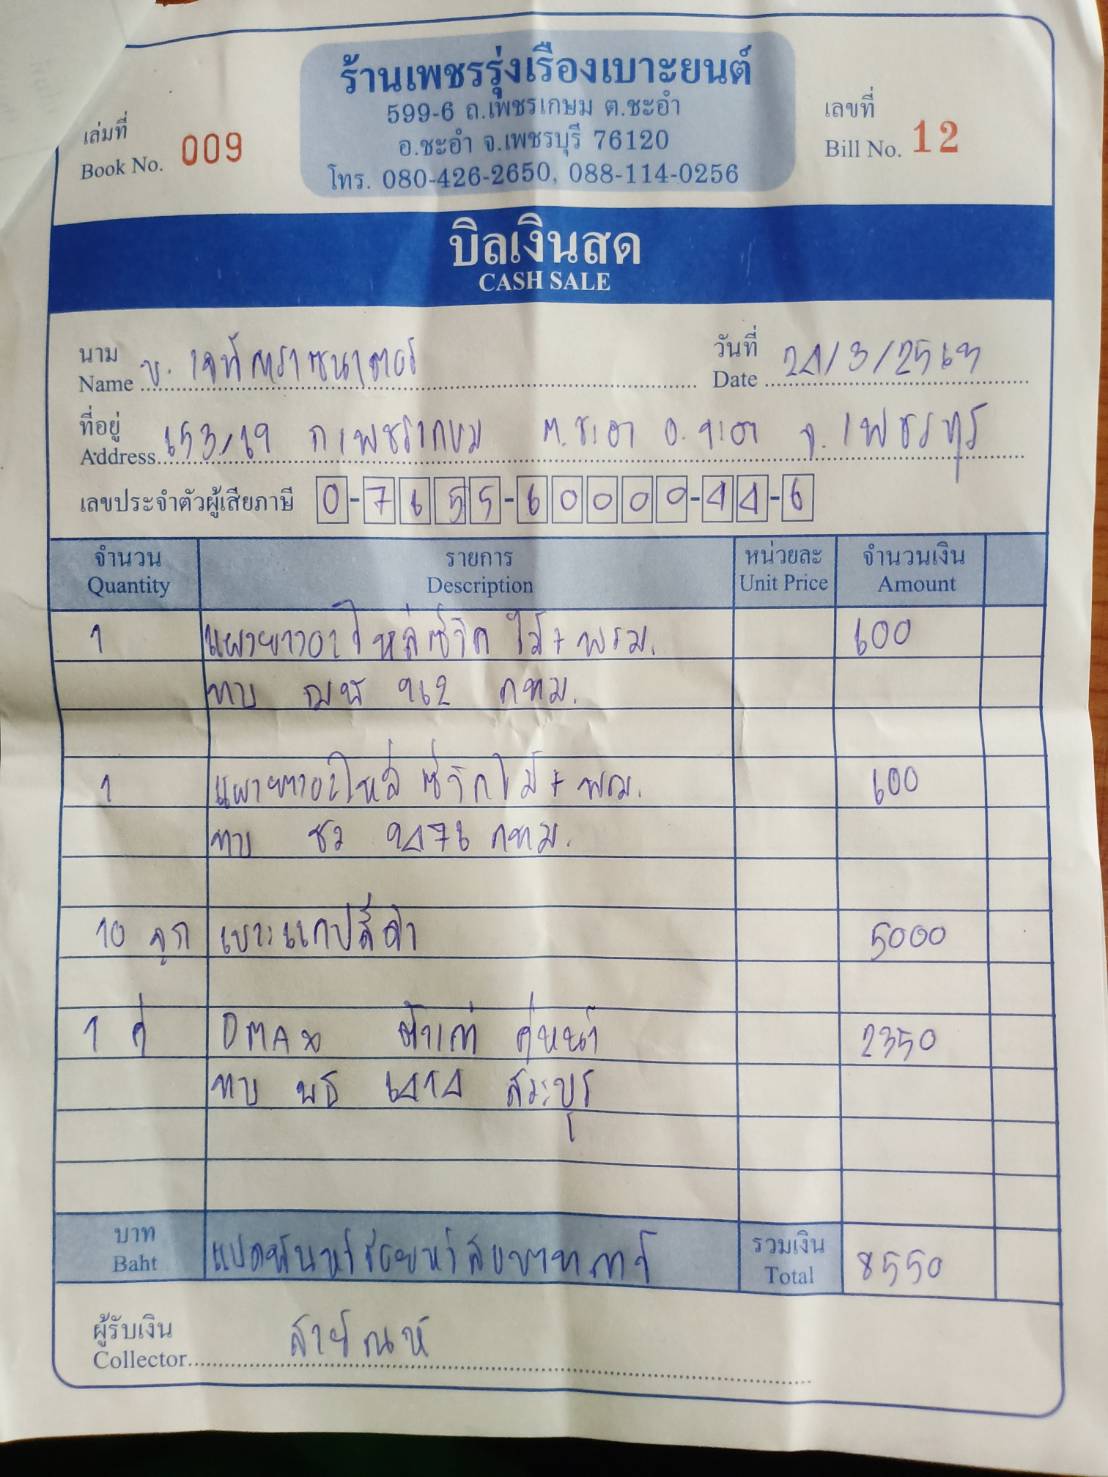 ร้านเพชรรุ่งเรืองเบาะยนต์
599-6 ถ.เพชรเกษม ต.ชะอำ
อ.ชะอำ จ.เพชรบุรี 76120
โทร. 080-426-2650, 088-114-0256
เล่มที่
Book No. 009
เลขที่
Bill No. 12
บิลเงินสด
CASH SALE
นาม
Name บ.
วันที่
Date 24/3/2563
ที่อยู่
Address 653/19 ถ เพชรเกษม ต. ชะอำ อ. ชะอำ จ. เพชรบุรี
เลขประจำตัวผู้เสียภาษี 0-7655-60000-44-6
จำนวน รายการ หน่วยละ จำนวนเงิน
Quantity Description Unit Price Amount
1 + พรม. 600
962 กทม.
1 + พรม. 600
9476 กทม.
10 ลูก เบาะแคปสีดำ 5000
1 คู่ DMAX คู่หน้า 2350
6414 สระบุรี
บาท แปดพันห้าร้อยห้าสิบบาทถ้วน รวมเงิน 8550
Baht Total
ผู้รับเงิน สายัณห์
Collector